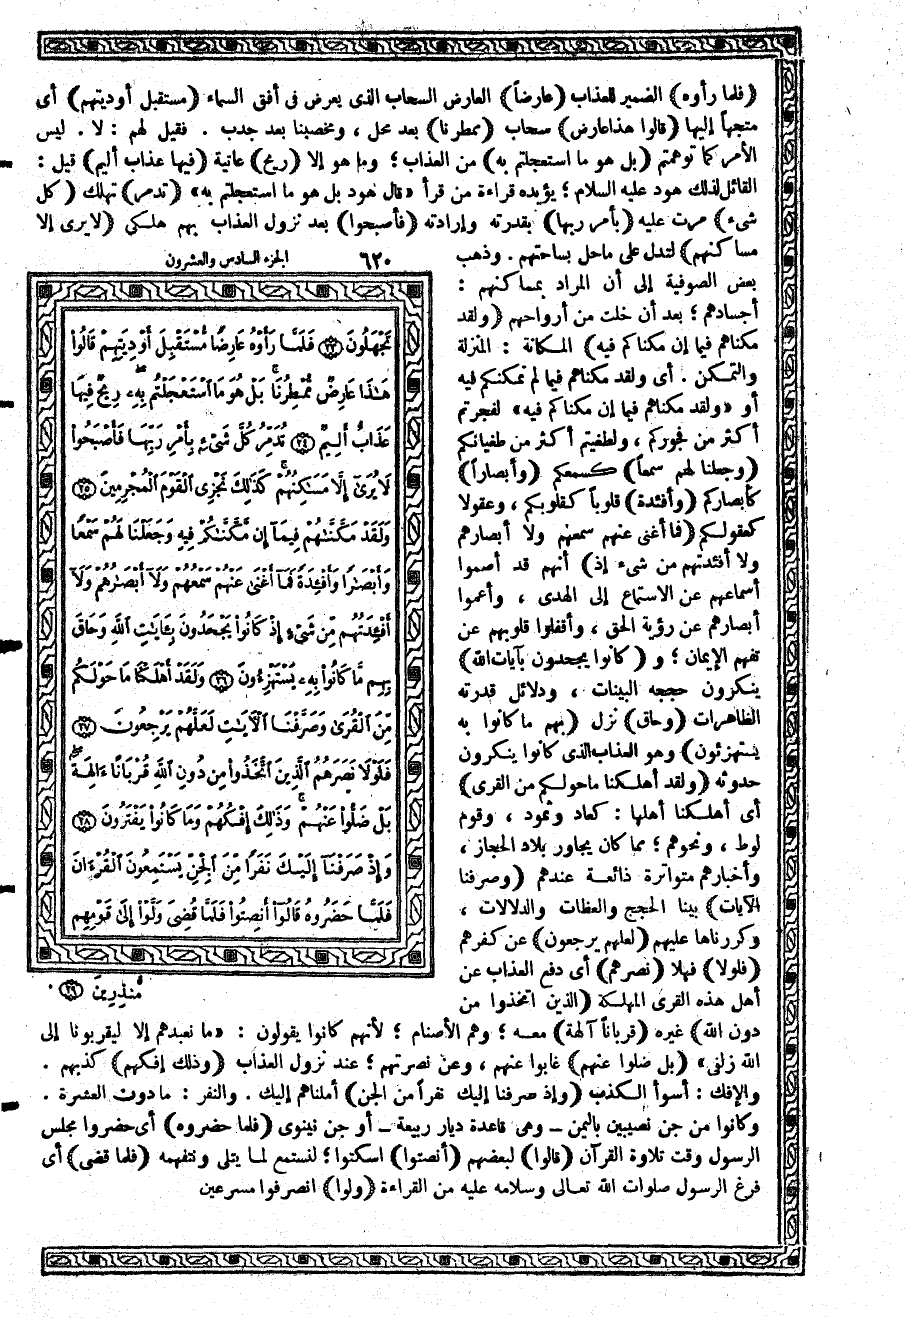 (فلما رأوه) الضمير للعذاب (عارضاً) العارض السحاب الذى يعرض فى أفق السماء (مستقبل أوديتهم) أى
متجهاً إليها (قالوا هذا عارض) سحاب (ممطرنا) بعد محل ، ومخصبنا بعد جدب . فقيل لهم : لا . ليس
الأمر كما توهمتم (بل هو ما استعجلتم به) من العذاب ؛ وما هو إلا (ريح) عاتية (فيها عذاب أليم) قيل :
القائل لذلك هود عليه السلام ؛ يؤيده قراءة من قرأ «قال هود بل هو ما استعجلتم به» (تدمر) تهلك (كل
شىء) مرت عليه (بأمر ربها) بقدرته وإرادته (فأصبحوا) بعد نزول العذاب بهم هلكى (لا يرى إلا
مساكنهم) لتدل على ماحل بساحتهم . وذهب
بعض الصوفية إلى أن المراد بمساكنهم :
أجسادهم ؛ بعد أن خلت من أرواحهم (ولقد
مكناهم فيما إن مكناكم فيه) المكانة : المنزلة
والتمكن . أى ولقد مكناهم فيما لم نمكنكم فيه
أو «ولقد مكناهم فيما إن مكناكم فيه» لفجرتم
أكثر من فجوركم ، ولطغيتم أكثر من طغيانكم
(وجعلنا لهم سمعاً) كسمعكم (وأبصاراً)
كأبصاركم (وأفئدة) قلوباً كقلوبكم ، وعقولا
كعقولكم (فما أغنى عنهم سمعهم ولا أبصارهم
ولا أفئدتهم من شىء إذ) أنهم قد أصموا
أسماعهم عن الاستماع إلى الهدى ، وأعموا
أبصارهم عن رؤية الحق ، وأقفلوا قلوبهم عن
تفهم الإيمان ؛ و (كانوا يجحدون بآيات الله)
ينكرون حججه البينات ، ودلائل قدرته
الظاهرات (وحاق) نزل (بهم ما كانوا به
يستهزئون) وهو العذاب الذى كانوا ينكرون
حدوثه (ولقد أهلكنا ماحولكم من القرى)
أى أهلكنا أهلها : كعاد وثمود ، وقوم
لوط ، ونحوهم ؛ مما كان يجاور بلاد الحجاز ،
وأخبارهم متواترة ذائعة عندهم (وصرفنا
الآيات) بينا الحجج والعظات والدلالات ،
وكررناها عليهم (لعلهم يرجعون) عن كفرهم
(فلولا) فهلا (نصرهم) أى دفع العذاب عن
أهل هذه القرى المهلكة (الذين اتخذوا من
دون الله) غيره (قرباناً آلهة) معه ؛ وهم الأصنام ؛ لأنهم كانوا يقولون : «ما نعبدهم إلا ليقربونا إلى
الله زلفى» (بل ضلوا عنهم) غابوا عنهم ، وعن نصرتهم ؛ عند نزول العذاب (وذلك إفكهم) كذبهم .
والإفك : أسوأ الكذب (وإذ صرفنا إليك نفراً من الجن) أملناهم إليك . والنفر : ما دون العشرة .
وكانوا من جن نصيبين باليمن – وهى قاعدة ديار ربيعة – أو جن نينوى (فلما حضروه) أى حضروا مجلس
الرسول وقت تلاوة القرآن (قالوا) لبعضهم (أنصتوا) اسكتوا ؛ لنستمع لما يتلى ونتفهمه (فلما قضى) أى
فرغ الرسول صلوات الله تعالى وسلامه عليه من القراءة (ولوا) انصرفوا مسرعين
٦٢٠ الجزء السادس والعشرون
تَجْهَلُونَ ﴿٢٣﴾ فَلَمَّا رَأَوْهُ عَارِضًا مُّسْتَقْبِلَ أَوْدِيَتِهِمْ قَالُوا۟
هَـٰذَا عَارِضٌ مُّمْطِرُنَا ۚ بَلْ هُوَ مَا ٱسْتَعْجَلْتُم بِهِۦ ۖ رِيحٌ فِيهَا
عَذَابٌ أَلِيمٌ ﴿٢٤﴾ تُدَمِّرُ كُلَّ شَىْءٍۭ بِأَمْرِ رَبِّهَا فَأَصْبَحُوا۟
لَا يُرَىٰٓ إِلَّا مَسَـٰكِنُهُمْ ۚ كَذَٰلِكَ نَجْزِى ٱلْقَوْمَ ٱلْمُجْرِمِينَ ﴿٢٥﴾
وَلَقَدْ مَكَّنَّـٰهُمْ فِيمَآ إِن مَّكَّنَّـٰكُمْ فِيهِ وَجَعَلْنَا لَهُمْ سَمْعًا
وَأَبْصَـٰرًا وَأَفْـِٔدَةً فَمَآ أَغْنَىٰ عَنْهُمْ سَمْعُهُمْ وَلَآ أَبْصَـٰرُهُمْ وَلَآ
أَفْـِٔدَتُهُم مِّن شَىْءٍ إِذْ كَانُوا۟ يَجْحَدُونَ بِـَٔايَـٰتِ ٱللَّهِ وَحَاقَ
بِهِم مَّا كَانُوا۟ بِهِۦ يَسْتَهْزِءُونَ ﴿٢٦﴾ وَلَقَدْ أَهْلَكْنَا مَا حَوْلَكُم
مِّنَ ٱلْقُرَىٰ وَصَرَّفْنَا ٱلْـَٔايَـٰتِ لَعَلَّهُمْ يَرْجِعُونَ ﴿٢٧﴾
فَلَوْلَا نَصَرَهُمُ ٱلَّذِينَ ٱتَّخَذُوا۟ مِن دُونِ ٱللَّهِ قُرْبَانًا ءَالِهَةًۢ ۖ
بَلْ ضَلُّوا۟ عَنْهُمْ ۚ وَذَٰلِكَ إِفْكُهُمْ وَمَا كَانُوا۟ يَفْتَرُونَ ﴿٢٨﴾
وَإِذْ صَرَفْنَآ إِلَيْكَ نَفَرًا مِّنَ ٱلْجِنِّ يَسْتَمِعُونَ ٱلْقُرْءَانَ
فَلَمَّا حَضَرُوهُ قَالُوٓا۟ أَنصِتُوا۟ ۖ فَلَمَّا قُضِىَ وَلَّوْا۟ إِلَىٰ قَوْمِهِم
مُّنذِرِينَ ﴿٢٩﴾